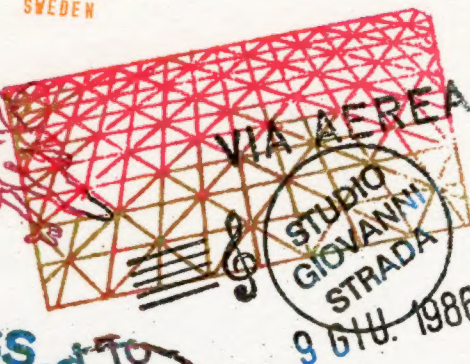 SWEDEN
VIA AEREA
STUDIO
GIOVANNI
STRADA
9 GIU. 1986
TO